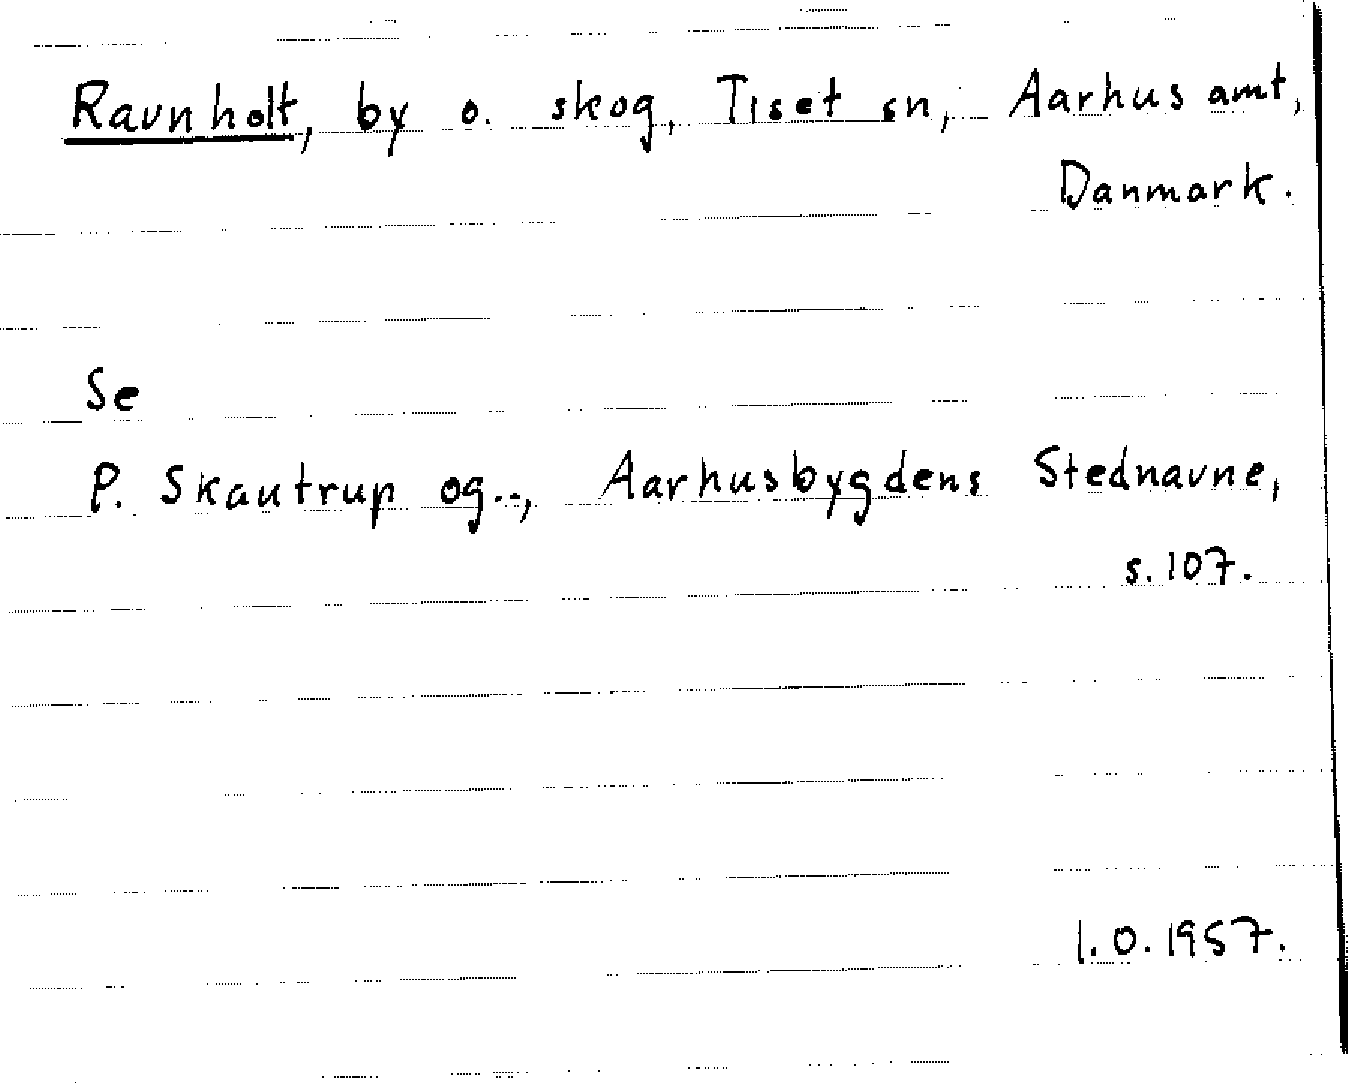 Ravnholt, by o. skog, Tiset sn, Aarhus amt,
Danmark.
Se
P. Skautrup og.., Aarhusbygdens Stednavne,
s. 107.
I.O. 1957.